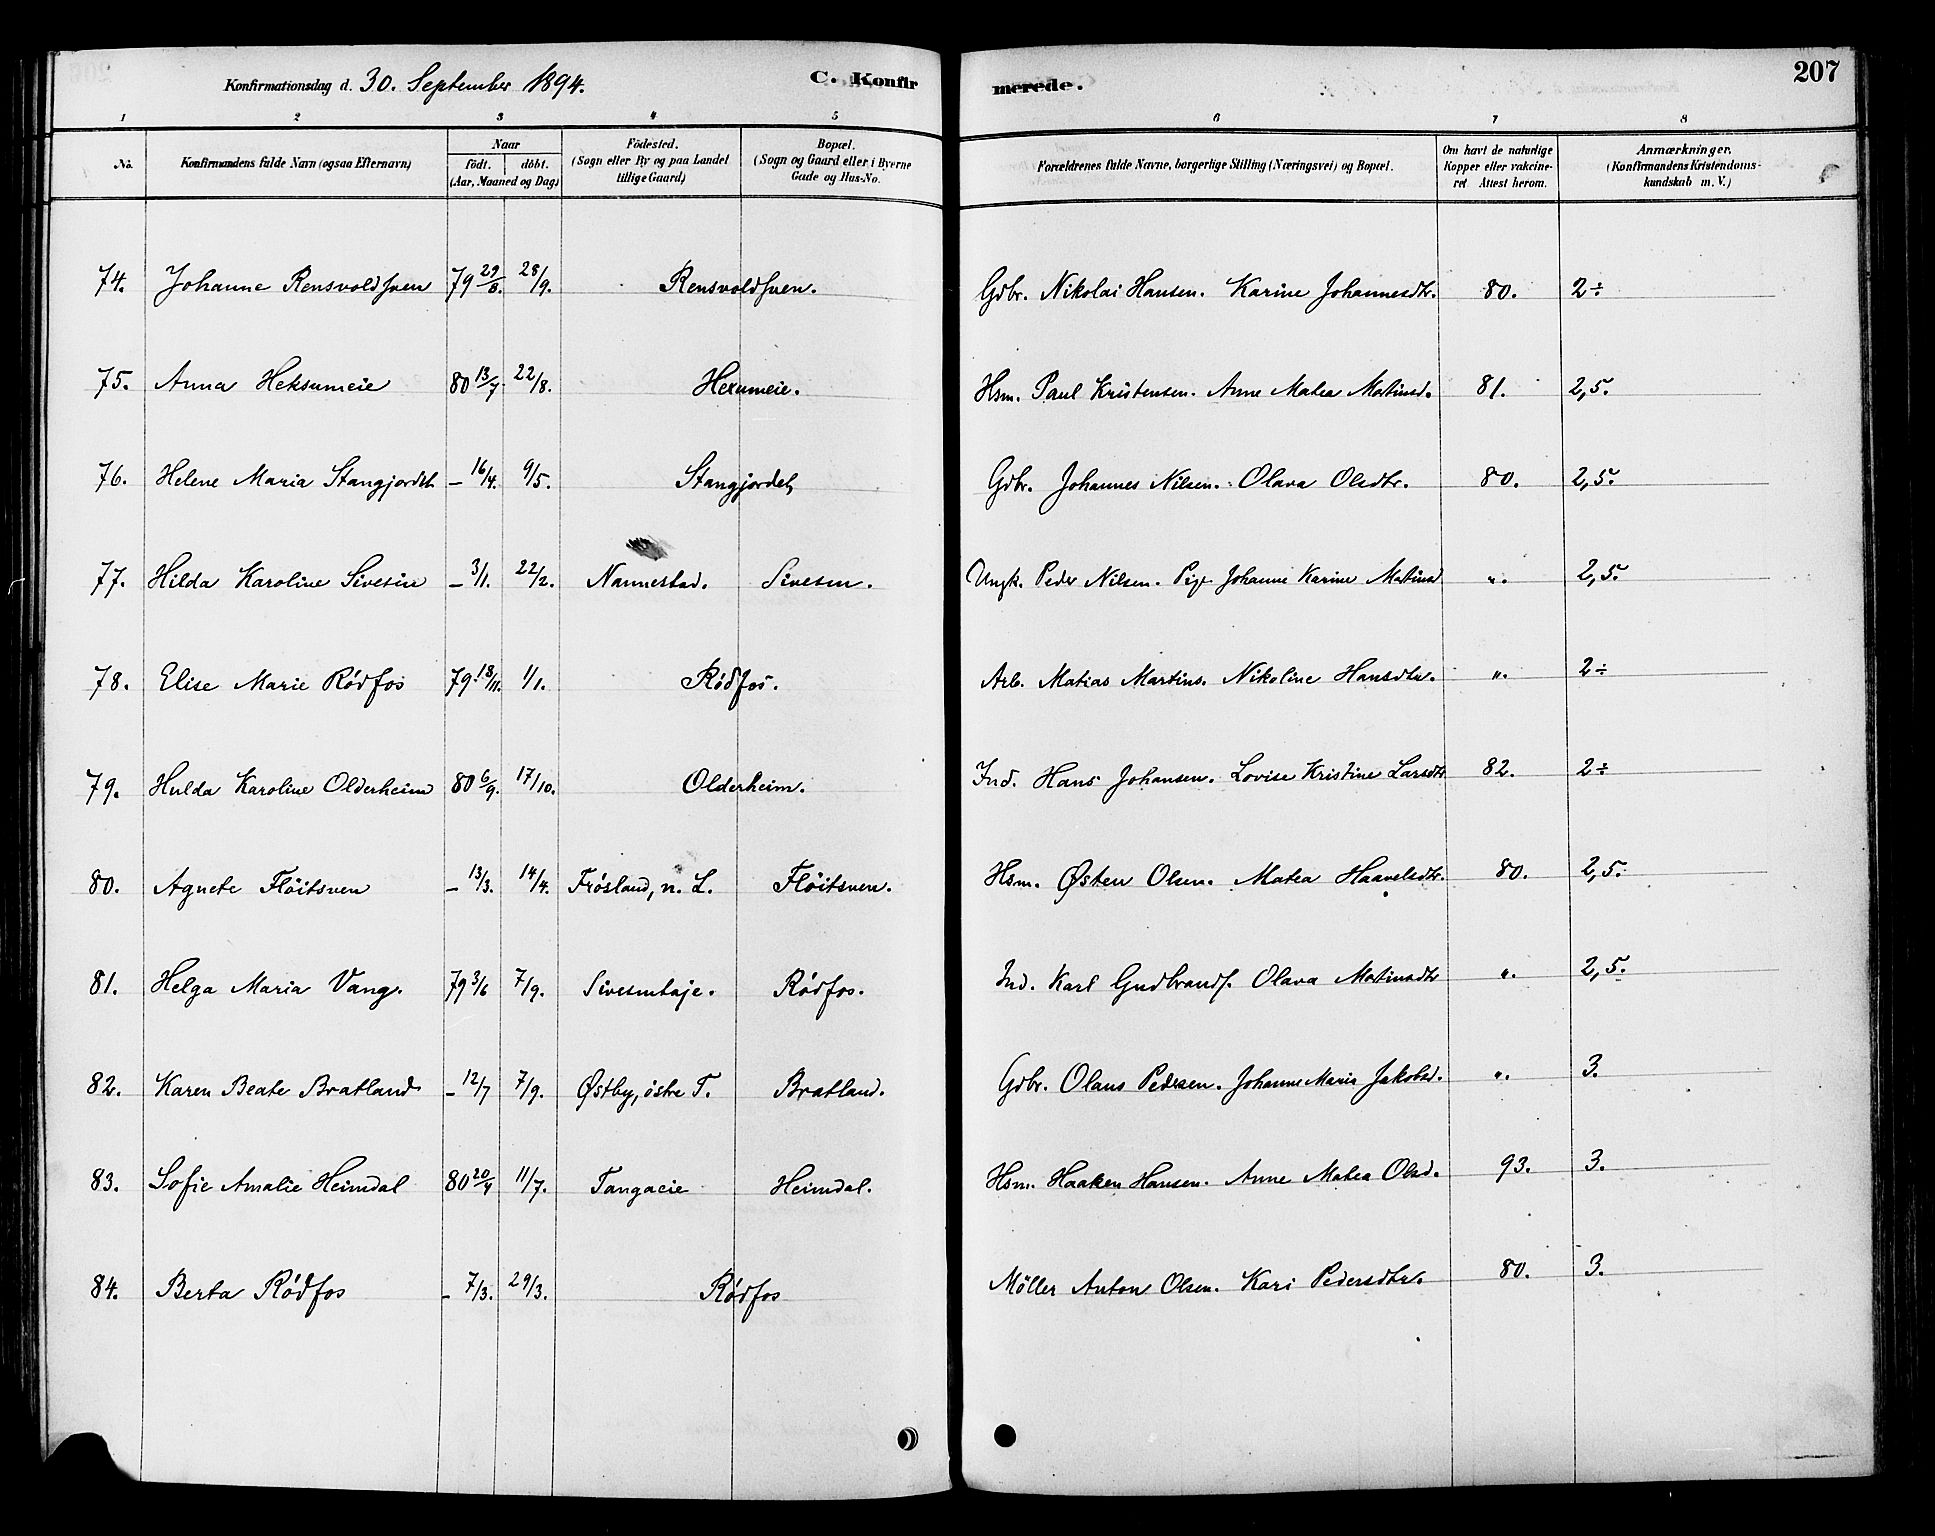 Konfirmationsdag d. 30. September 1894. C. Konfirmerede. 207
1 2 3 4 5 6 7 8
No. Konfirmandens fulde Navn (ogsaa Efternavn) Naar födt. döbt. (Aar, Maaned og Dag) Födested. (Sogn eller By og paa Landet tillige Gaard) Bopæl. (Sogn og Gaard eller i Byerne Gade og Hus-No. Forældrenes fulde Navne, borgerlige Stilling (Næringsvei) og Bopæl. Om havt de naturlige Kopper eller vakcineret Attest herom. Anmærkninger. (Konfirmandens Kristendomskundskab m. V.)
74. Johanne Rensvoldsven 79 29/8. 28/9. Rensvoldsven. Gdbr. Nikolai Hansen. Karine Johannesdtr. 80. 2÷
75. Anna Heksumeie 80 13/7 22/8. Hexumeie. Hsm. Paul Kristensen. Anne Matea Martinsd. 81. 2,5.
76. Helene Maria Stangjordet – 16/4. 9/5. Stangjordet, Gdbr. Johannes Nilsen. Olava Olsdtr. 80. 2,5.
77. Hilda Karoline Sivesin – 3/1. 22/2. Nannestad. Sivesin. Ungk. Peder Nilsen. Pige Johanne Karine Martinsd ". 2,5.
78. Elise Marie Rödfos 79 18/11. 1/1. Rödfos. Arb. Matias Martins. Nikoline Hansdtr. ". 2÷
79. Hulda Karoline Olderheim 80 6/9. 17/10. Olderheim. Ind. Hans Johansen. Lovise Kristine Larsdtr 82. 2÷
80. Agnete Flöitsven – 13/3. 14/4. Frösland, n. L. Flöitsven. Hsm. Østen Olsen. Matea Haavelsdtr. 80. 2,5.
81. Helga Maria Vang. 79 3/6 7/9. Sivesinhaje. Rödfos. Ind. Karl Gudbrands. Olava Martinsdtr ". 2,5.
82. Karen Beate Bratland – 12/7 7/9. Østby, östre T. Bratland. Gdbr. Olaus Pedersen. Johanne Maria Jakobsd. ". 3.
83. Sofie Amalie Heimdal 80 20/4 11/7. Tangaeie Heimdal. Hsm. Haaken Hansen. Anne Matea Olsd. 93. 3.
84. Berta Rödfos – 7/3. 29/3. Rödfos Möller Anton Olsen. Kari Pedersdtr. 80. 3.